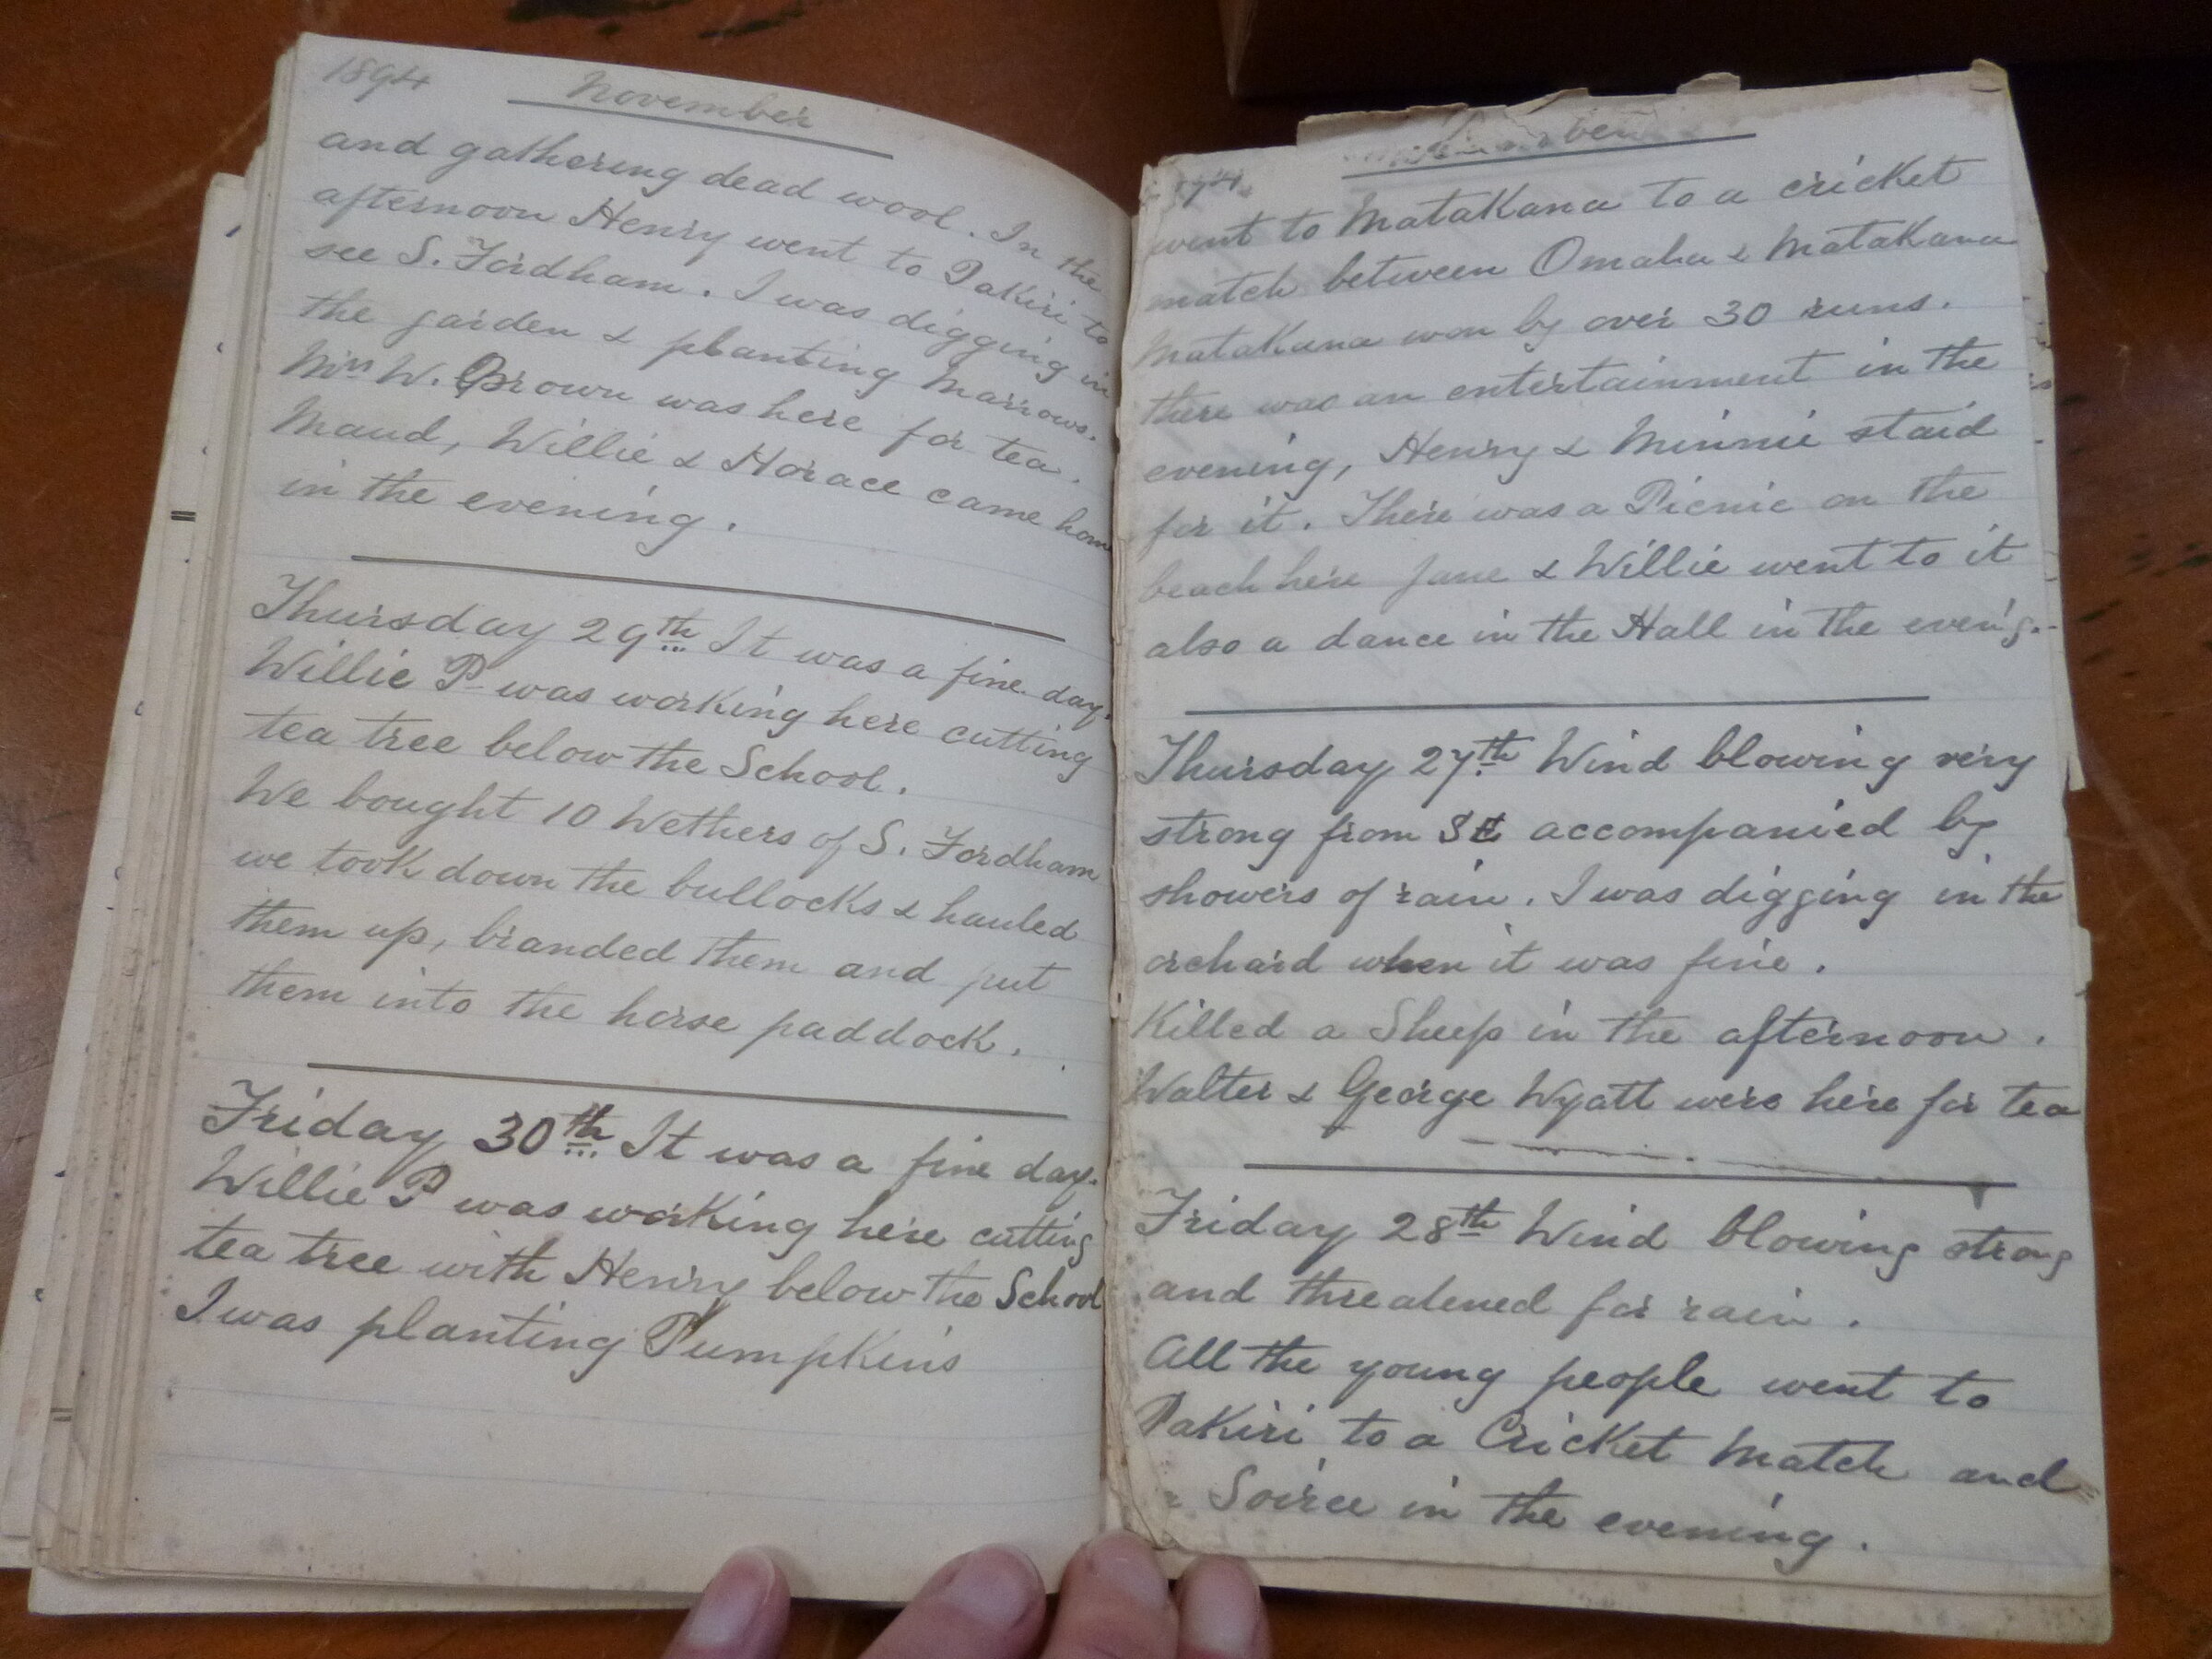 1894 November
and gathering dead wool. In the
afternoon Henry went to Pakiri to
see S. Fordham. I was digging in
the garden & planting Marrows.
Mrs W. Brown was here for tea.
Maud, Willie & Horace came home
in the evening.
Thursday 29th It was a fine day.
Willie P- was working here cutting
tea tree below the School.
We bought 10 Wethers of S. Fordham
we took down the bullocks & hauled
them up, branded them and put
them into the horse paddock.
Friday 30th It was a fine day.
Willie P was working here cutting
tea tree with Henry below the School
I was planting Pumpkins
went to Matakana to a cricket
match between Omaha & Matakana
Matakana won by over 30 runs.
there was an entertainment in the
evening, Henry & Minnie staid
for it. There was a Picnic on the
beach here Jane & Willie went to it
also a dance in the Hall in the even'g.
Thursday 27th Wind blowing very
strong from SE accompanied by
showers of rain. I was digging in the
orchard when it was fine.
Killed a Sheep in the afternoon.
Walter & George Wyatt were here for tea
Friday 28th Wind blowing strong
and threatened for rain.
All the young people went to
Pakiri to a Cricket Match and
Soiree in the evening.